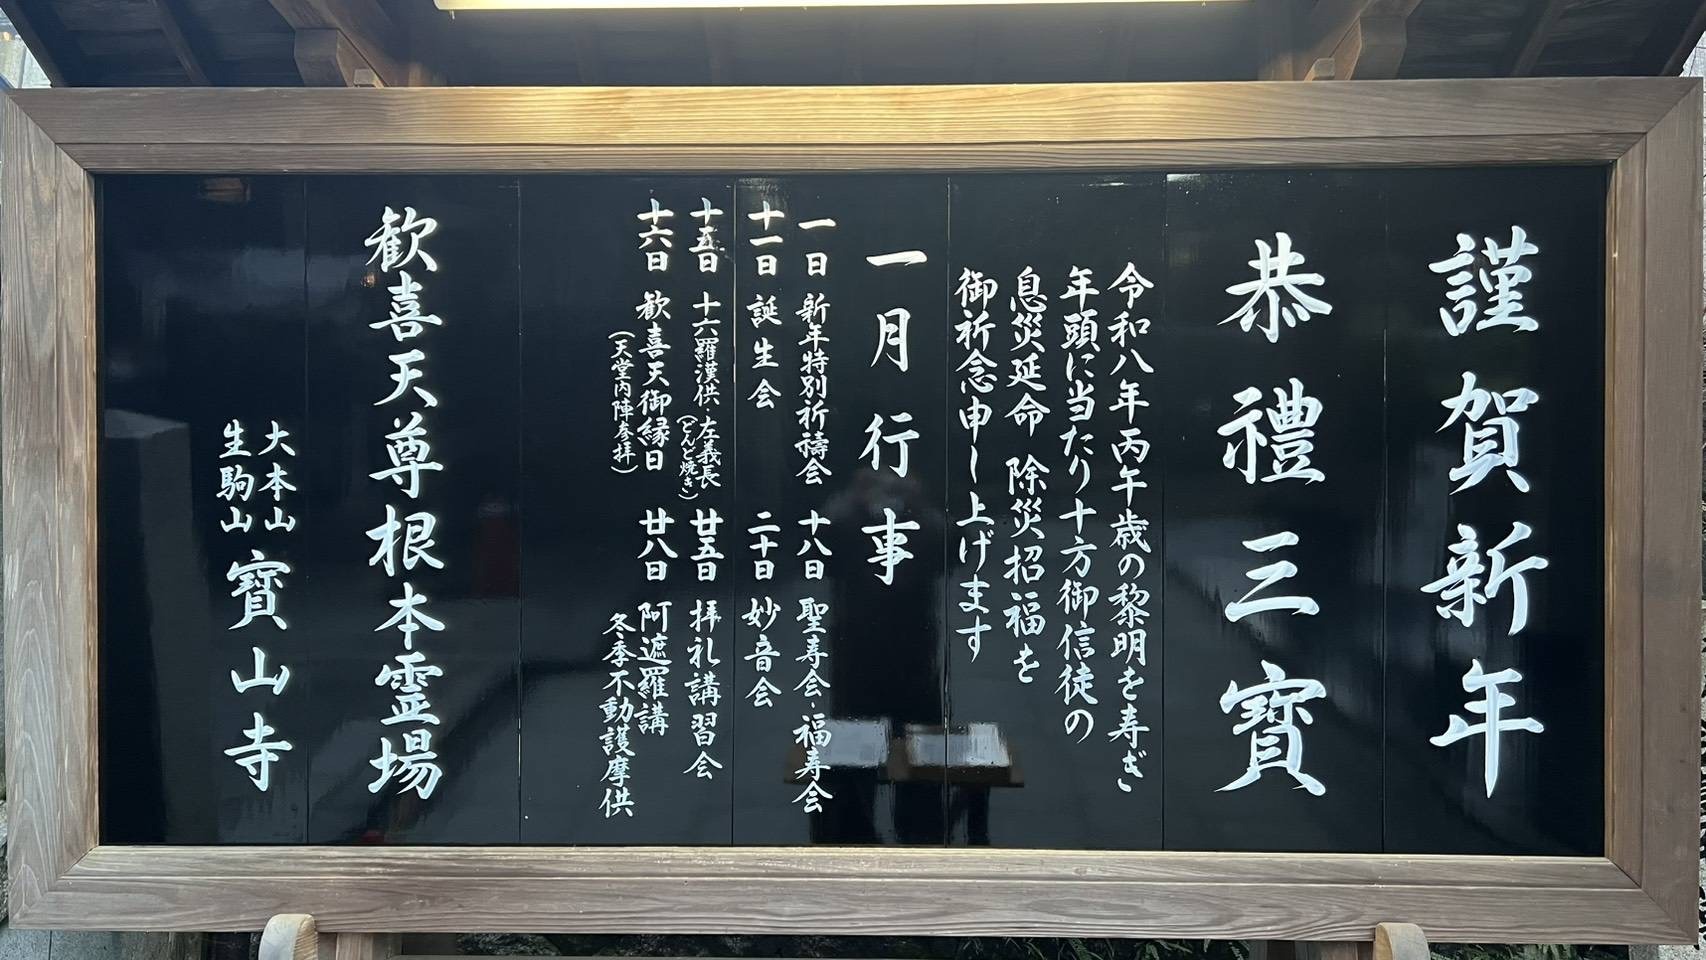 謹賀新年
恭禮三寶
令和八年丙午歳の黎明を寿ぎ
年頭に当たり十方御信徒の
息災延命 除災招福を
御祈念申し上げます
一月行事
一日 新年特別祈禱会
十一日 誕生会
十五日 十六羅漢供・左義長
(どんど焼き)
十六日 歓喜天御縁日
(天堂内陣参拝)
十八日 聖寿会・福寿会
二十日 妙音会
廿五日 拝礼講習会
廿八日 阿遮羅講
冬季不動護摩供
歓喜天尊根本霊場
大本山
生駒山
寳山寺